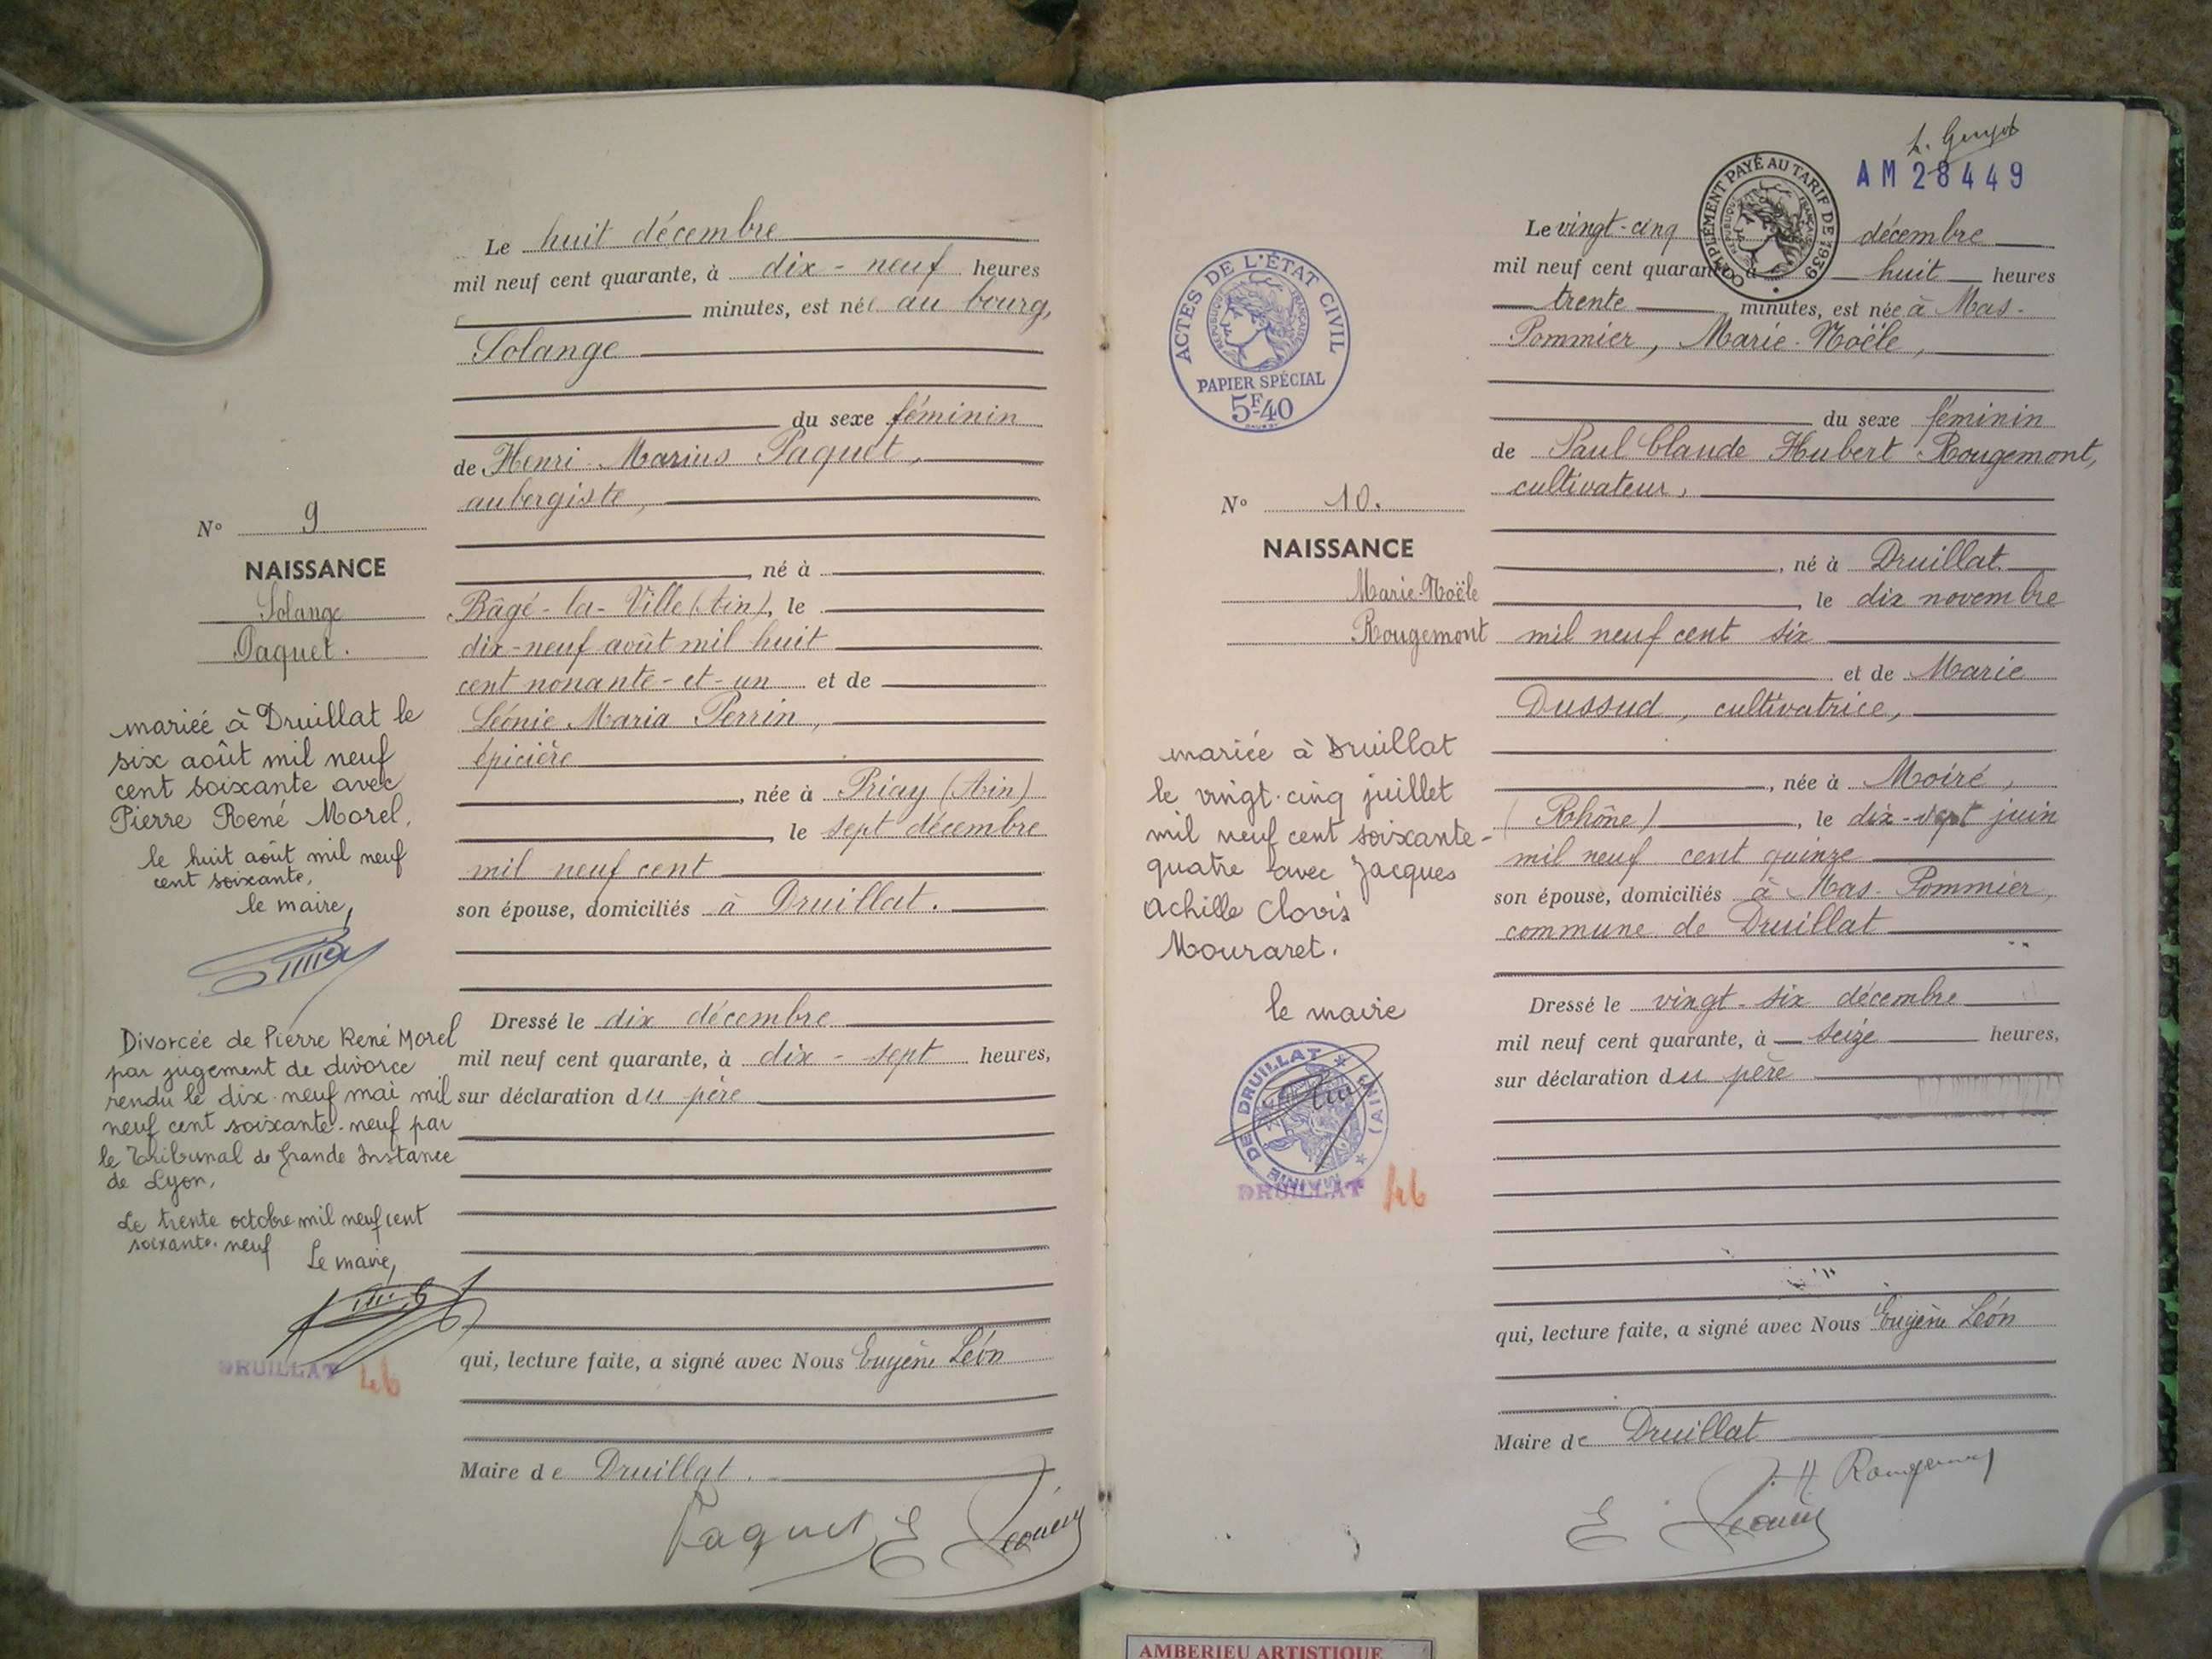 Le huit décembre
mil neuf cent quarante, à dix-neuf heures
minutes, est née au bourg,
Solange
du sexe féminin
de Henri Marius Paquet,
aubergiste,
, né à
Bâgé-la-Ville (Ain), le
dix-neuf août mil huit
cent nonante-et-un et de
Léonie Maria Perrin,
épicière
, née à Priay (Ain)
, le sept décembre
mil neuf cent
son épouse, domiciliés à Druillat.
Dressé le dix décembre
mil neuf cent quarante, à dix-sept heures,
sur déclaration du père
qui, lecture faite, a signé avec Nous Eugène Léon
Maire de Druillat.
Paquet E
N° 9
NAISSANCE
Solange
Paquet.
mariée à Druillat le
six août mil neuf
cent soixante avec
Pierre René Morel,
le huit août mil neuf
cent soixante,
le maire,
Divorcée de Pierre René Morel
par jugement de divorce
rendu le dix-neuf mai mil
neuf cent soixante-neuf par
le Tribunal de Grande Instance
de Lyon,
Le trente octobre mil neuf cent
soixante-neuf
Le maire,
DRUILLAT 46
AM 28449
COMPLÉMENT PAYÉ AU TARIF DE 1939
REPUBLIQUE FRANÇAISE
ACTES DE L'ÉTAT CIVIL
REPUBLIQUE FRANÇAISE
PAPIER SPÉCIAL
5F40
Le vingt-cinq décembre
mil neuf cent quarante, à huit heures
trente minutes, est née à Mas-
Pommier, Marie-Noële,
du sexe féminin
de Paul Claude Hubert Rougemont,
cultivateur,
, né à Druillat
, le dix novembre
mil neuf cent six
et de Marie
Dussud, cultivatrice,
, née à Moiré,
(Rhône), le dix-sept juin
mil neuf cent quinze
son épouse, domiciliés à Mas-Pommier,
commune de Druillat
Dressé le vingt-six décembre
mil neuf cent quarante, à seize heures,
sur déclaration du père
qui, lecture faite, a signé avec Nous Eugène Léon
Maire de Druillat
H. Rougemont
E
N° 10.
NAISSANCE
Marie-Noële
Rougemont
mariée à Druillat
le vingt-cinq juillet
mil neuf cent soixante-
quatre avec Jacques
Achille Clovis
Mouraret.
le maire
MAIRIE DE DRUILLAT (AIN)
DRUILLAT 46
AMBERIEU ARTISTIQUE